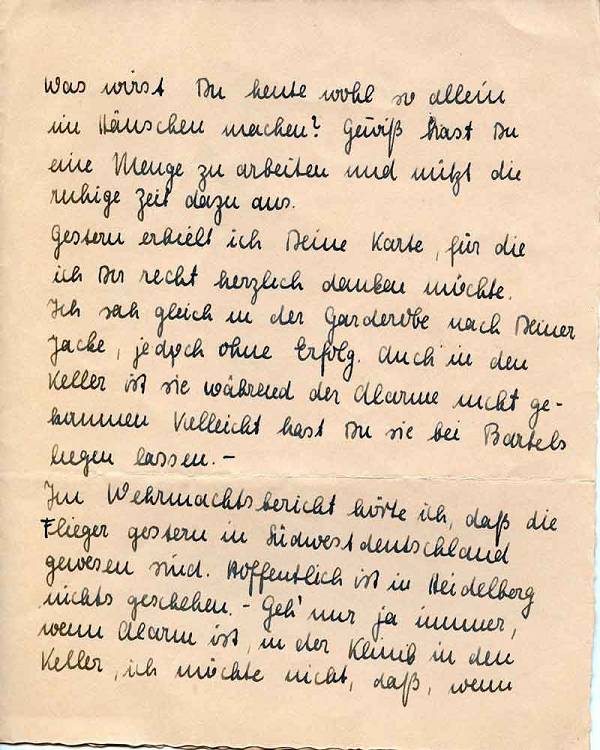 Was wirst Du heute wohl so allein
im Häuschen machen? Gewiß hast Du
eine Menge zu arbeiten und nützt die
ruhige Zeit dazu aus.
Gestern erhielt ich Deine Karte, für die
ich Dir recht herzlich danken möchte.
Ich sah gleich in der Garderobe nach Deiner
Jacke, jedoch ohne Erfolg. Auch in den
Keller ist sie während der Alarme nicht ge-
kommen Vielleicht hast Du sie bei Bartels
liegen lassen. -
Im Wehrmachtsbericht hörte ich, daß die
Flieger gestern in Südwestdeutschland
gewesen sind. Hoffentlich ist in Heidelberg
nichts geschehen. - Geh' nur ja immer,
wenn Alarm ist, in der Klinik in den
Keller, ich möchte nicht, daß, wenn